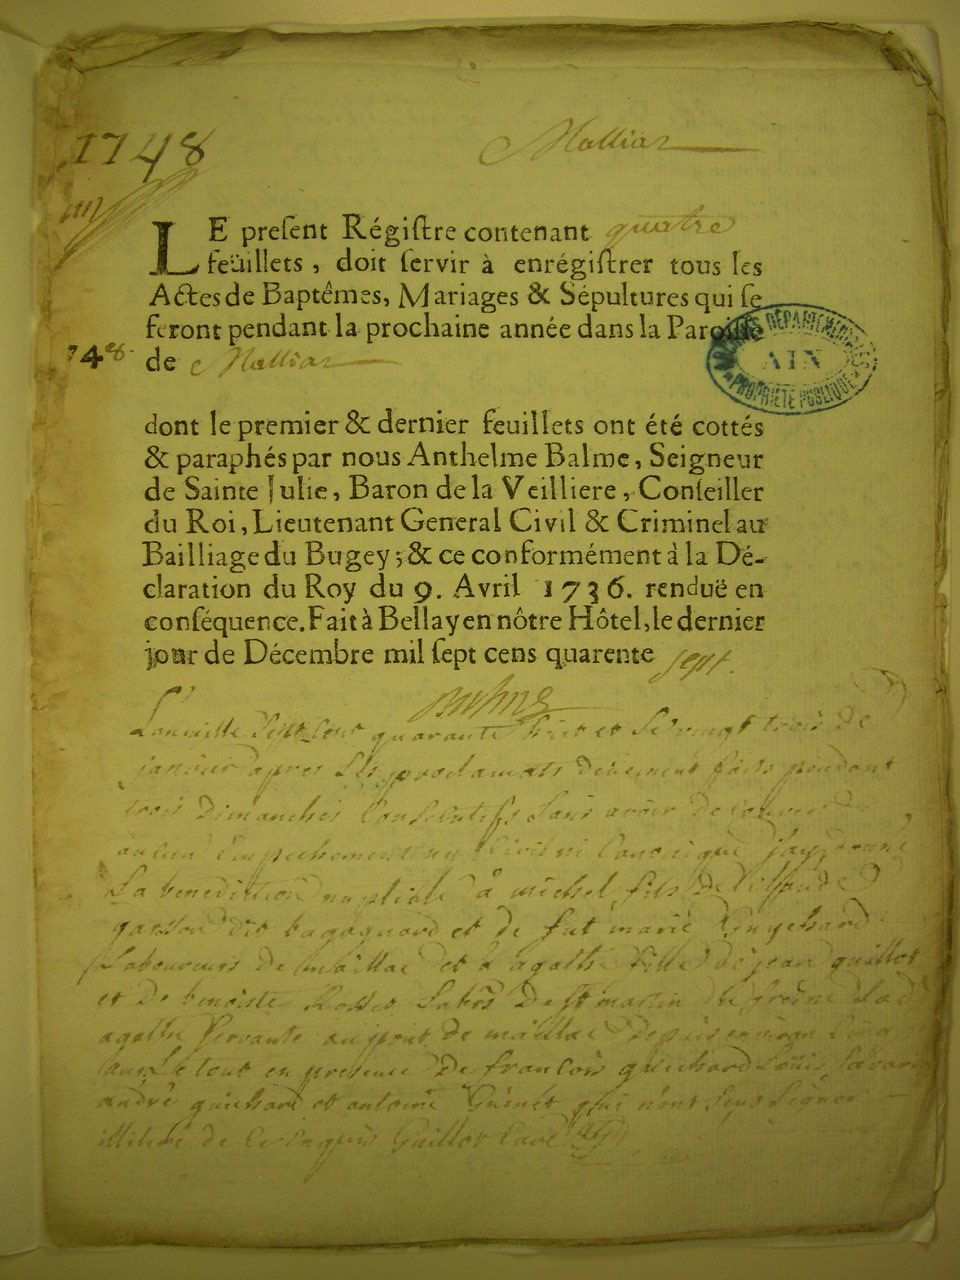 1748
Malliaz
LE preſent Régiſtre contenant quatre
feüillets, doit ſervir à enrégiſtrer tous les
Actes de Baptêmes, Mariages & Sépultures qui ſe
feront pendant la prochaine année dans la Paroiſſe
748
de Malliaz
DÉPARTEMEN
AIN
PROPRIÉTÉ PUBLIQUE
dont le premier & dernier feuillets ont été cottés
& paraphés par nous Anthelme Balme, Seigneur
de Sainte Julie, Baron de la Veilliere, Conſeiller
du Roi, Lieutenant General Civil & Criminel au
Bailliage du Bugey; & ce conformément à la Dé-
claration du Roy du 9. Avril 1736. renduë en
conſéquence. Fait à Bellay en nôtre Hôtel, le dernier
jour de Décembre mil ſept cens quarente sept.
L'an mille sept cent quarante huit et le vingt trois de
janvier apres les proclamats düement faits pendant
trois dimanches consecutifs sans avoir decouvert
aucun empechement ny civil ni canonique j'ay donné
La benediction nuptiale à michel fils de
garson dit et de fut marie
Laboureurs de maillac et à agathe fille de jean guillot
et de benoiste de St martin du frêne
agathe servante au pont de maillac depuis environ cinq
ans Le tout en presence de francois guichard Louis
andré guichard et antoine qui n'ont sçus signer
illiteré de ce enquis Guillot curé